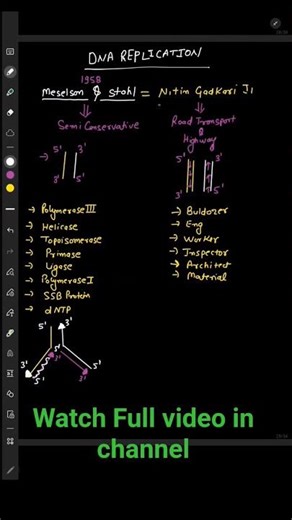 DNA REPLICATION
1958
Meselson & Stahl = Nitin Gadkari Ji
Semi Conservative
Road Transport
&
Highway
5' 3'
3' 5'
5' 3'
3' 5'
→ Polymerase III
→ Helicase
→ Topoisomerase
→ Primase
→ Ligase
→ Polymerase I
→ SSB Protein
→ dNTP
→ Buldozer
→ Eng
→ Worker
→ Inspector
→ Architect
→ Material
5' 3'
5' 3'
3' 5' 3' 5'
Watch Full video in
channel